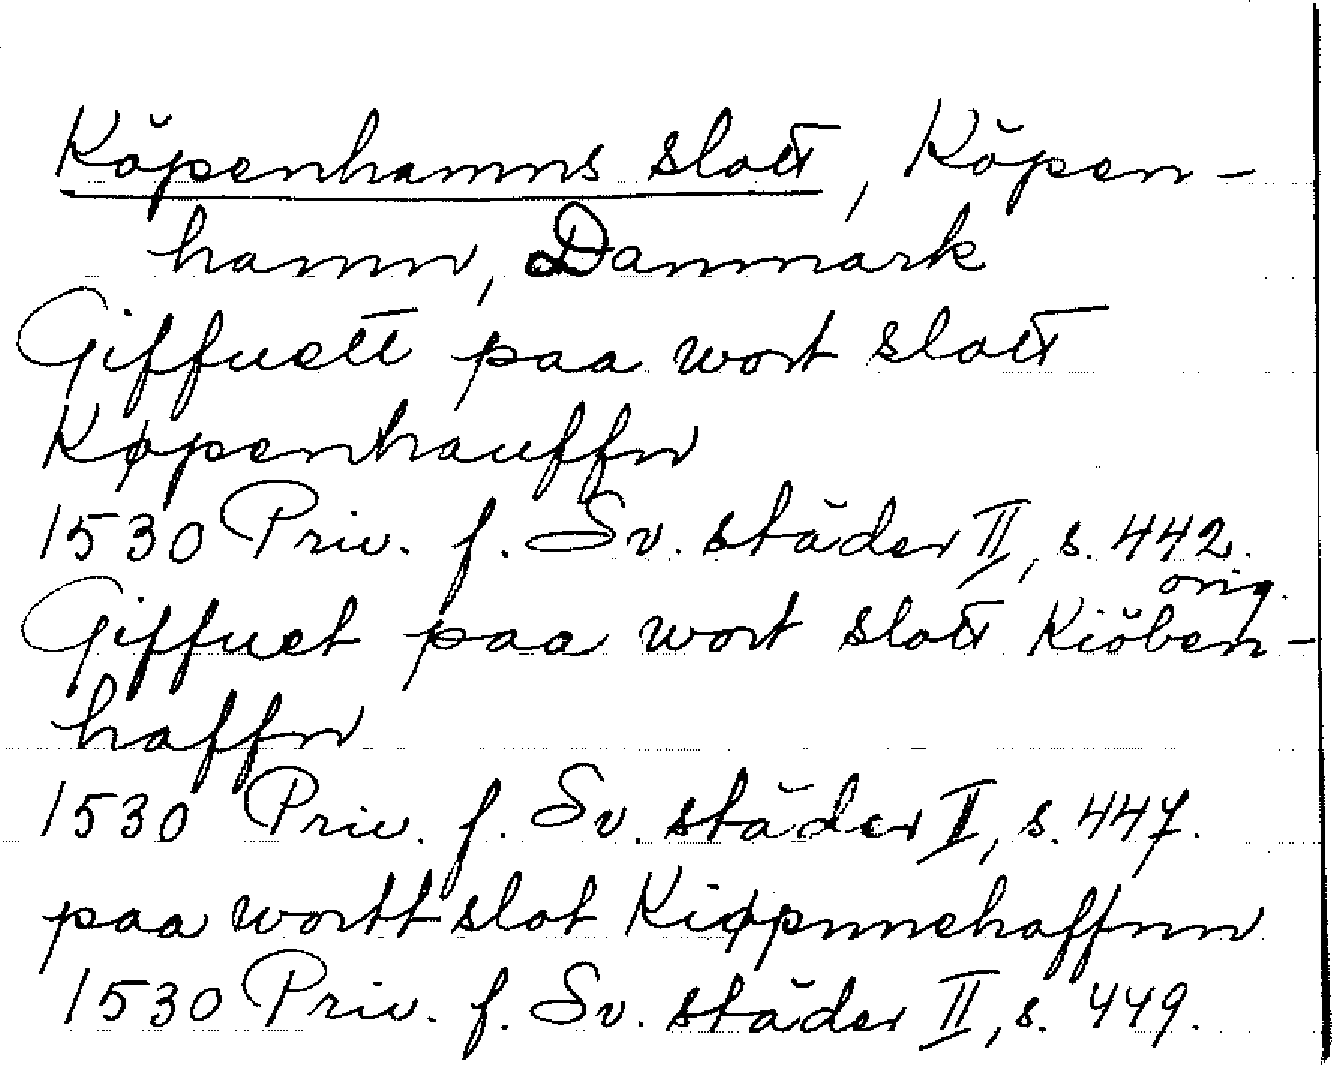 Köpenhamns slott, Köpen-
hamn, Danmark
Giffuett paa wort slott
Køpenhauffn
1530 Priv. f. Sv. städer II, s. 442.
orig.
Giffuet paa wort slott Kiöben-
haffn
1530 Priv. f. Sv. städer II, s. 447.
paa wortt slot Kiøpnnehaffnn
1530 Priv. f. Sv. städer II, s. 449.